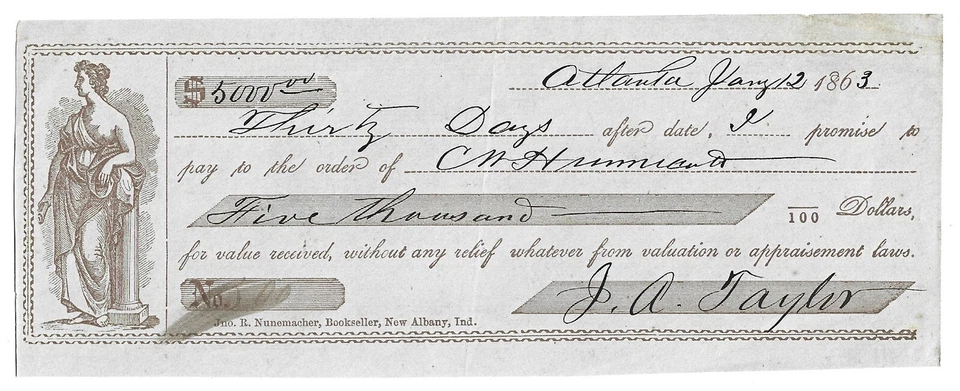 $ 5000 00
Atlanta Jany 12 1863
Thirty Days after date, I promise to
pay to the order of C W
Five thousand /100 Dollars,
for value received, without any relief whatever from valuation or appraisement laws.
No.
Jno. R. Nunemacher, Bookseller, New Albany, Ind.
J. A. Taylor